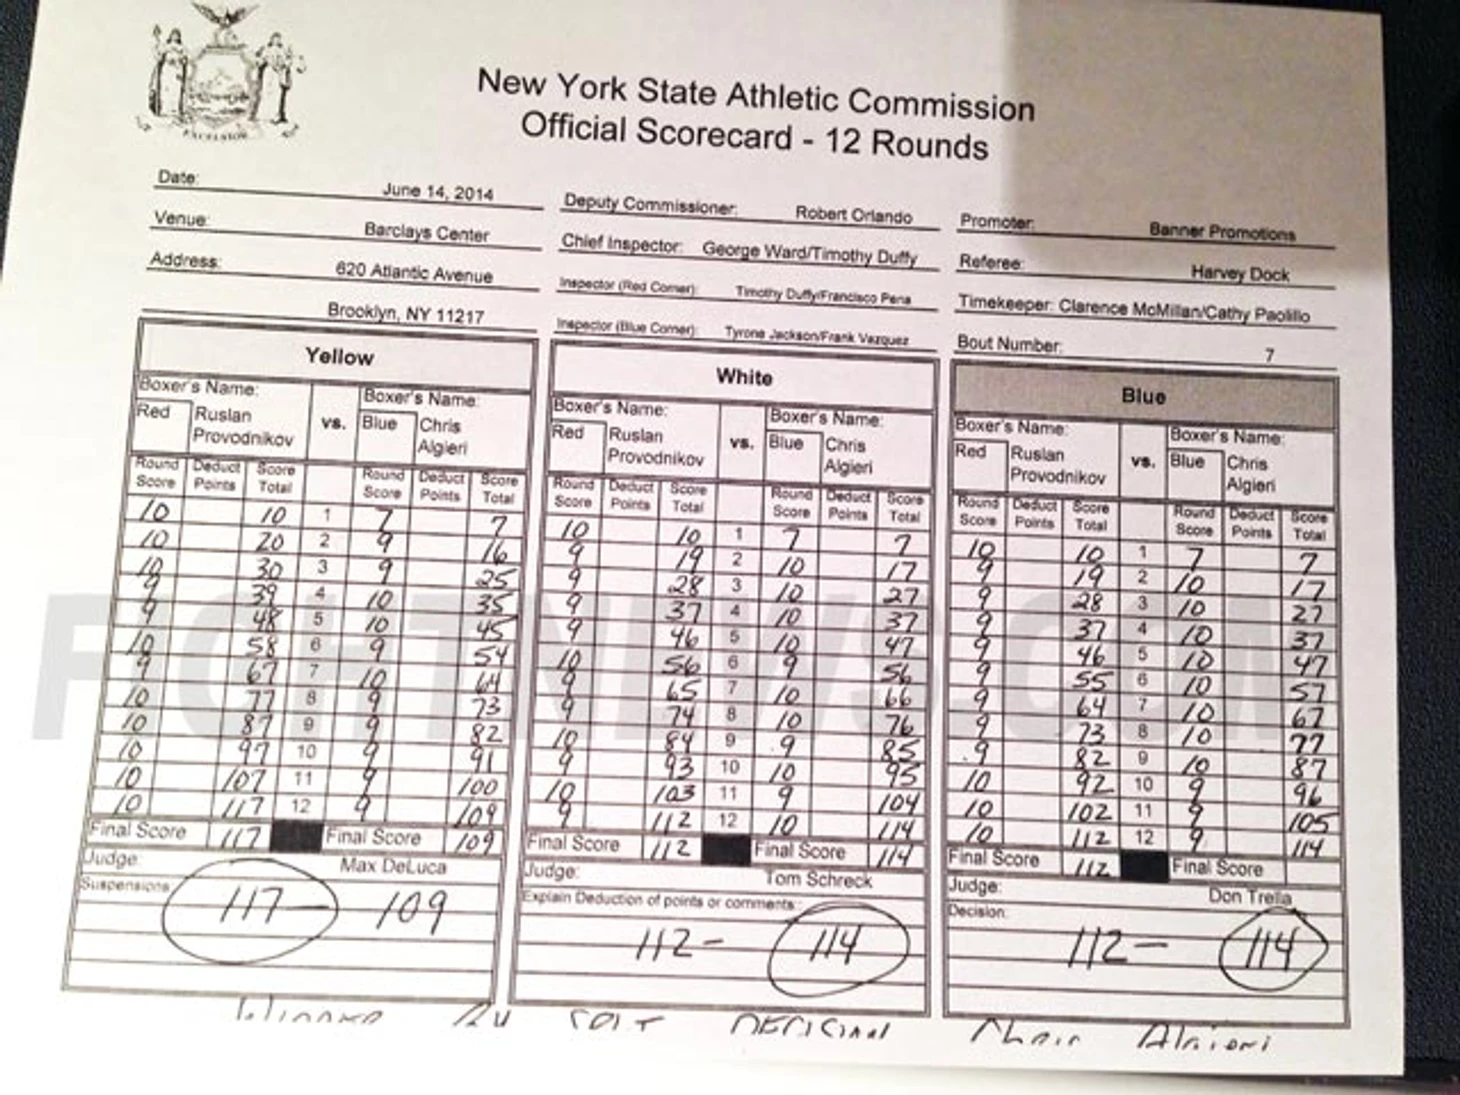 EXCELSIOR
New York State Athletic Commission
Official Scorecard - 12 Rounds
Date: June 14, 2014
Venue: Barclays Center
Address: 620 Atlantic Avenue
Brooklyn, NY 11217
Deputy Commissioner: Robert Orlando
Chief Inspector: George Ward/Timothy Duffy
Inspector (Red Corner): Timothy Duffy/Francisco Pena
Inspector (Blue Corner): Tyrone Jackson/Frank Vazquez
Promoter: Banner Promotions
Referee: Harvey Dock
Timekeeper: Clarence McMillan/Cathy Paolillo
Bout Number: 7
Yellow
Boxer's Name: Boxer's Name:
Red Ruslan Provodnikov vs. Blue Chris Algieri
Round Score Deduct Points Score Total Round Score Deduct Points Score Total
10 10 1 7 7
10 20 2 9 16
10 30 3 9 25
9 39 4 10 35
9 48 5 10 45
10 58 6 9 54
9 67 7 10 64
10 77 8 9 73
10 87 9 9 82
10 97 10 9 91
10 107 11 9 100
10 117 12 9 109
Final Score 117 Final Score 109
Judge: Max DeLuca
Suspensions
117 - 109
White
Boxer's Name: Boxer's Name:
Red Ruslan Provodnikov vs. Blue Chris Algieri
Round Score Deduct Points Score Total Round Score Deduct Points Score Total
10 10 1 7 7
9 19 2 10 17
9 28 3 10 27
9 37 4 10 37
9 46 5 10 47
10 56 6 9 56
9 65 7 10 66
9 74 8 10 76
10 84 9 9 85
9 93 10 10 95
10 103 11 9 104
9 112 12 10 114
Final Score 112 Final Score 114
Judge: Tom Schreck
Explain Deduction of points or comments:
112 - 114
Blue
Boxer's Name: Boxer's Name:
Red Ruslan Provodnikov vs. Blue Chris Algieri
Round Score Deduct Points Score Total Round Score Deduct Points Score Total
10 10 1 7 7
9 19 2 10 17
9 28 3 10 27
9 37 4 10 37
9 46 5 10 47
9 55 6 10 57
9 64 7 10 67
9 73 8 10 77
9 82 9 10 87
10 92 10 9 96
10 102 11 9 105
10 112 12 9 114
Final Score 112 Final Score
Judge: Don Trella
Decision:
112 - 114
Winner By Split Decision Chris Algieri